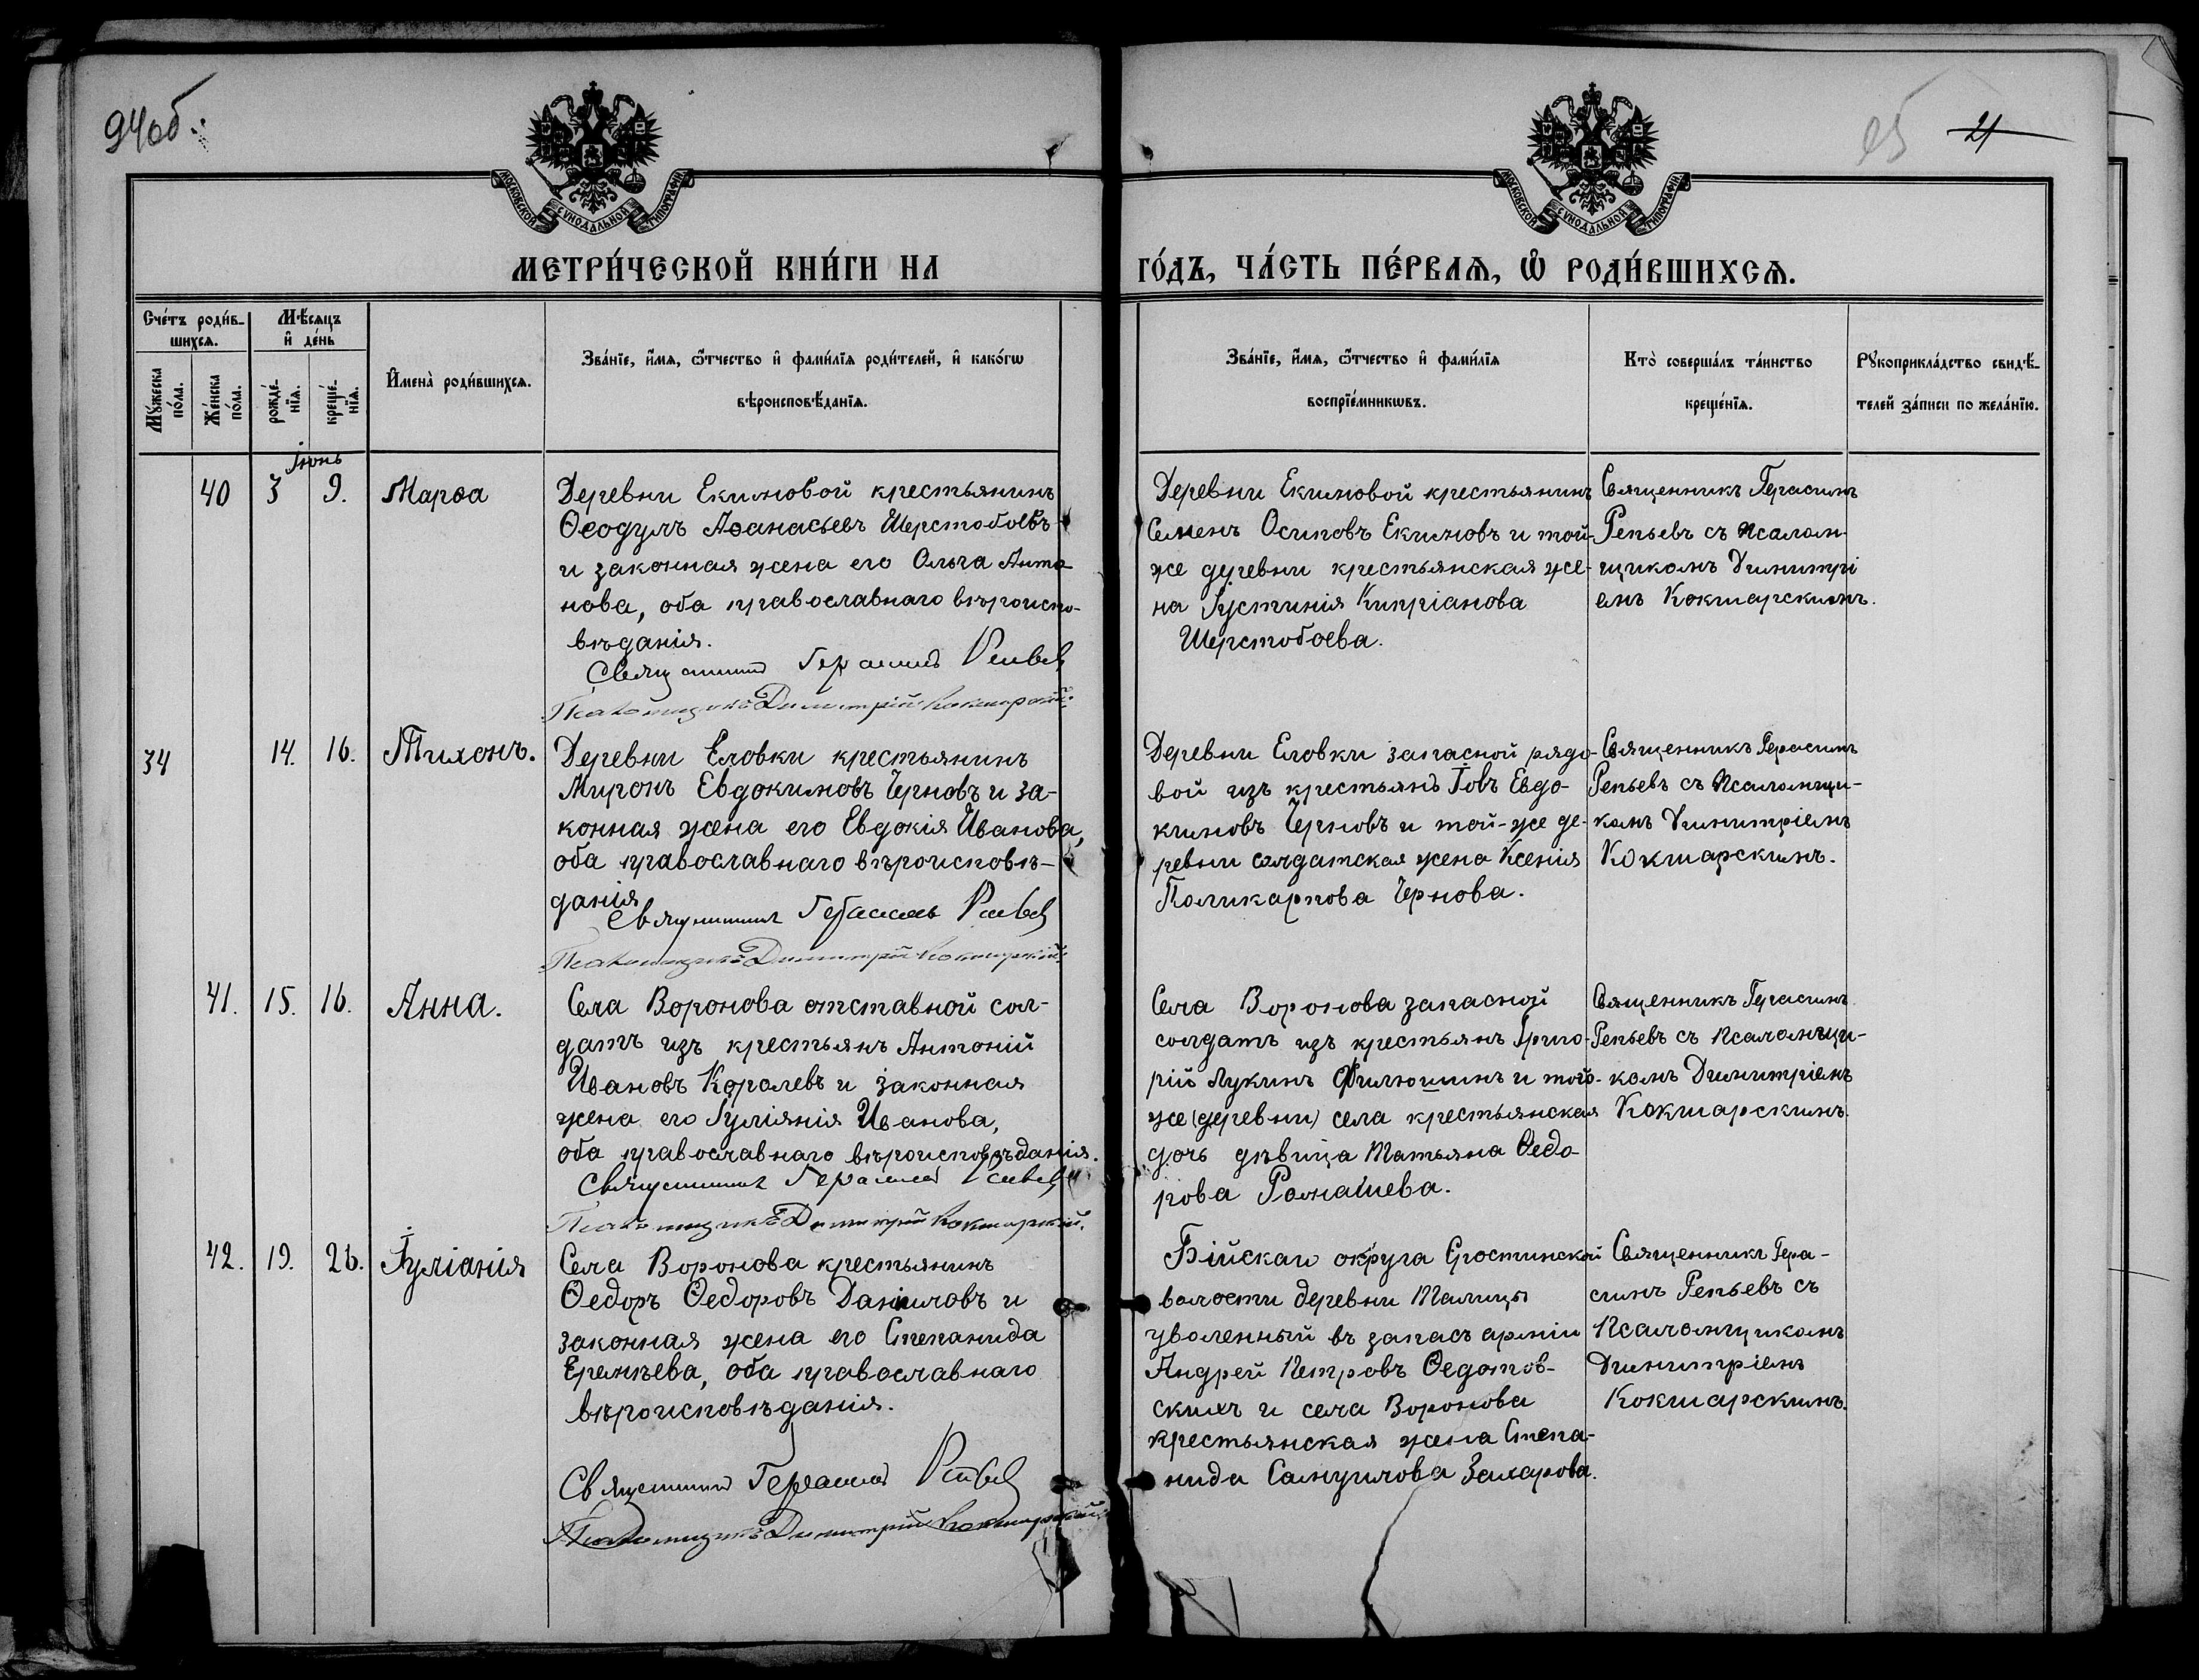 94об.
25 21
МОСКОВСКОЙ СѴНОДАЛЬНОЙ ТИПОГРАФІИ
МОСКОВСКОЙ СѴНОДАЛЬНОЙ ТИПОГРАФІИ
МЕТРИ́ЧЕСКОЙ КНИ́ГИ НА ГО́ДЪ, ЧА́СТЬ ПЕ́РВАѦ, Ѡ҆ РОДИ́ВШИХСѦ.
Сче́тъ роди́в-
шихсѧ.
Мѣ́сѧцъ
и҆ де́нь
Мꙋ́жеска
по́ла.
Же́нска
по́ла.
рожде́-
нїѧ.
креще́-
нїѧ.
И҆мена̀ роди́вшихсѧ.
Зва́нїе, и҆́мѧ, ѻ҆́тчество и҆ фами́лїѧ роди́телей, и҆ како́гѡ
вѣроисповѣ́данїѧ.
Зва́нїе, и҆́мѧ, ѻ҆́тчество и҆ фами́лїѧ
воспрїе́мникѡвъ.
Кто̀ соверша́лъ та́инство
креще́нїѧ.
Рꙋкоприкла́дство свидѣ́-
телей за́писи по жела́нїю.
Іюнь
40 3 9. Марѳа
Деревни Екимовой крестьянинъ
Ѳеодулъ Аѳанасьевъ Шерстобоевъ
и законная жена его Ольга Анто-
нова, оба православнаго вѣроиспо-
вѣданія.
Священникъ Герасимъ Репьевъ
Псаломщикъ Димитрій Кокшарскій.
Деревни Екимовой крестьянинъ
Семенъ Осиповъ Екимовъ и той-
же деревни крестьянская же-
на Іустинія Кипріанова
Шерстобоева.
Священникъ Герасимъ
Репьевъ съ псалом-
щикомъ Димитрі
емъ Кокшарскимъ.
34 14. 16. Тихонъ.
Деревни Еловки крестьянинъ
Миронъ Евдокимовъ Черновъ и за-
конная жена его Евдокія Иванова,
оба православнаго вѣроисповѣ-
данія
Священникъ Герасимъ Репьевъ
Псаломщикъ Димитрій Кокшарскій.
Деревни Еловки запасной рядо-
вой изъ крестьянъ Іовъ Евдо-
кимовъ Черновъ и той-же де-
ревни солдатская жена Ксенія
Поликарпова Чернова.
Священникъ Герасимъ
Репьевъ съ псаломщи-
комъ Димитріемъ
Кокшарскимъ.
41. 15. 16. Анна.
Села Воронова отставной сол-
датъ изъ крестьянъ Антоній
Ивановъ Королевъ и законная
жена его Іуліянія Иванова,
оба православнаго вѣроисповѣданія.
Священникъ Герасимъ Репьевъ
Псаломщикъ Димитрій Кокшарскій.
Села Воронова запасной
солдатъ изъ крестьянъ Григо-
рій Лукинъ Филюшинъ и той-
же (деревни) села крестьянская
дочь дѣвица Татьяна Ѳедо-
рова Ромашева.
Священникъ Герасимъ
Репьевъ съ псаломщи-
комъ Димитріемъ
Кокшарскимъ.
42. 19. 26. Іуліанія
Села Воронова крестьянинъ
Ѳедоръ Ѳедоровъ Даниловъ и
законная жена его Степанида
Еремѣева, оба православнаго
вѣроисповѣданія.
Священникъ Герасимъ Репьевъ
Псаломщикъ Димитрій Кокшарскій.
Бійскаго округа Сростинской
волости деревни Талицы
уволенный въ запасъ арміи
Андрей Петровъ Ѳедотов-
скихъ и села Воронова
крестьянская жена Степа-
нида Самуилова Захарова.
Священникъ Гера-
симъ Репьевъ съ
псаломщикомъ
Димитріемъ
Кокшарскимъ.